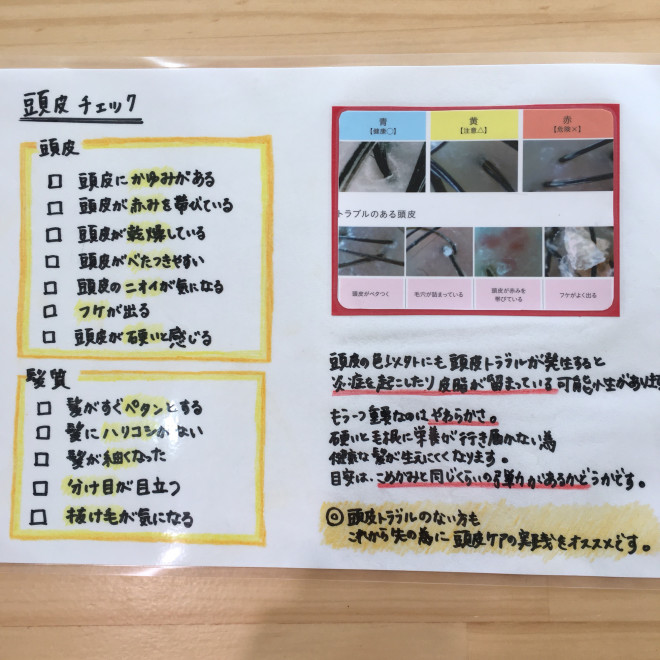 頭皮チェック
頭皮
□ 頭皮にかゆみがある
□ 頭皮が赤みを帯びている
□ 頭皮が乾燥している
□ 頭皮がべたつきやすい
□ 頭皮のニオイが気になる
□ フケが出る
□ 頭皮が硬いと感じる
髪質
□ 髪がすぐペタンとする
□ 髪にハリコシがない
□ 髪が細くなった
□ 分け目が目立つ
□ 抜け毛が気になる
青 黄 赤
【健康○】 【注意△】 【危険×】
トラブルのある頭皮
頭皮がベタつく 毛穴が詰まっている 頭皮が赤みを フケがよく出る
帯びている
頭皮の色以外にも頭皮トラブルが発生すると
炎症を起こしたり皮脂が留まっている可能性があります
もう1つ重要なのはやわらかさ。
硬いと毛根に栄養が行き届かない為
健康な髪が生えにくくなります。
目安は、こめかみと同じくらいの弾力があるかどうかです。
◎頭皮トラブルのない方も
これから先の為に頭皮ケアの実践をオススメです。